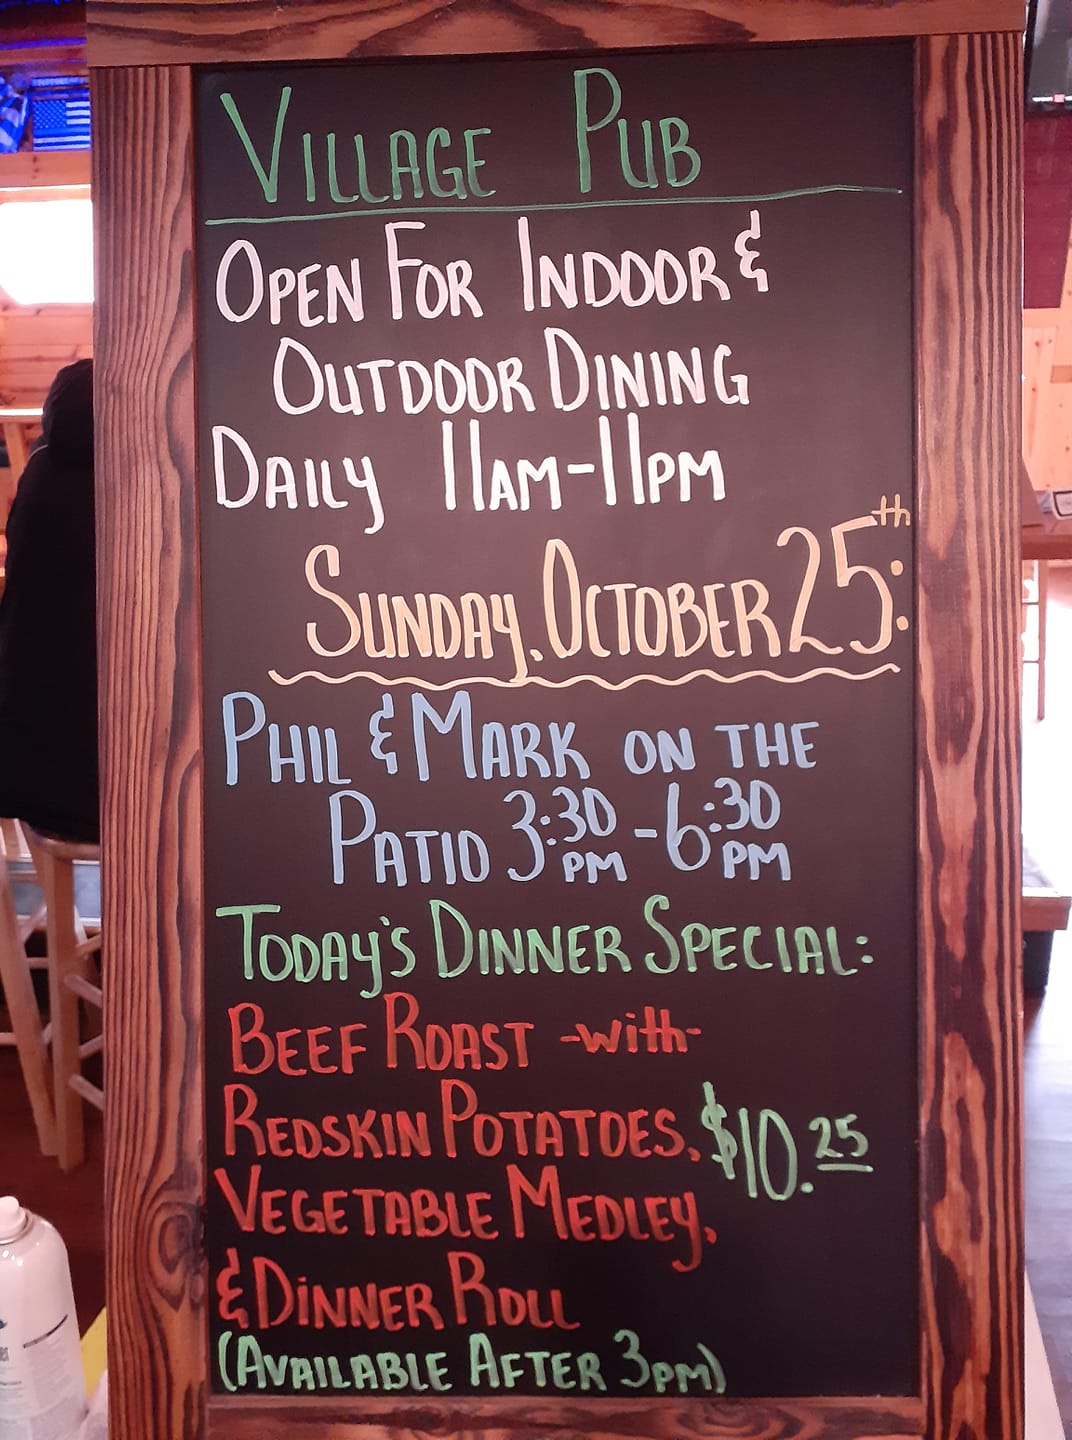 VILLAGE PUB
OPEN FOR INDOOR &
OUTDOOR DINING
DAILY 11AM-11PM
SUNDAY, OCTOBER 25th:
PHIL & MARK ON THE
PATIO 3:30PM-6:30PM
TODAY'S DINNER SPECIAL:
BEEF ROAST -with-
REDSKIN POTATOES, $10.25
VEGETABLE MEDLEY,
& DINNER ROLL
(AVAILABLE AFTER 3PM)